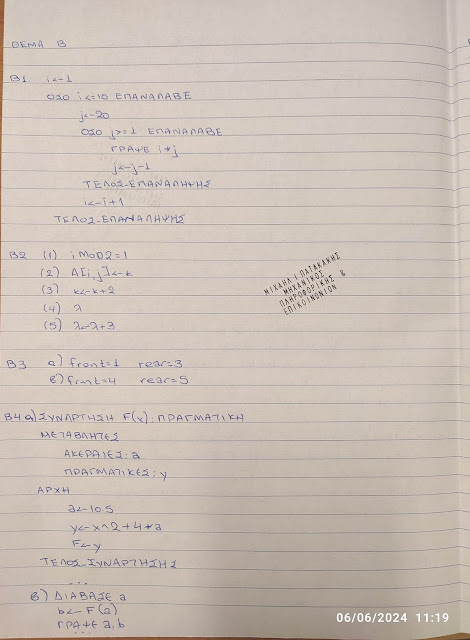 ΘΕΜΑ Β
Β1. i<-1
ΟΣΟ i<=10 ΕΠΑΝΑΛΑΒΕ
j<-20
ΟΣΟ j>=1 ΕΠΑΝΑΛΑΒΕ
ΓΡΑΨΕ i*j
j<-j-1
ΤΕΛΟΣ_ΕΠΑΝΑΛΗΨΗΣ
i<-i+1
ΤΕΛΟΣ_ΕΠΑΝΑΛΗΨΗΣ
Β2 (1) i MOD2=1
(2) A[i,j]<-k
(3) k<-k+2
(4) λ
(5) λ<-λ+3
ΜΙΧΑΗΛ Ι. ΠΑΤΑΚΑΚΗΣ
ΜΗΧΑΝΙΚΟΣ
ΠΛΗΡΟΦΟΡΙΚΗΣ &
ΕΠΙΚΟΙΝΩΝΙΩΝ
Β3 α) front=1 rear=3
β) front=4 rear=5
Β4 α) ΣΥΝΑΡΤΗΣΗ F(x): ΠΡΑΓΜΑΤΙΚΗ
ΜΕΤΑΒΛΗΤΕΣ
ΑΚΕΡΑΙΕΣ: a
ΠΡΑΓΜΑΤΙΚΕΣ: y
ΑΡΧΗ
a<-10.5
y<-x^2+4*a
F<-y
ΤΕΛΟΣ_ΣΥΝΑΡΤΗΣΗΣ
...
β) ΔΙΑΒΑΣΕ a
b<-F(a)
ΓΡΑΨΕ a,b
...
06/06/2024 11:19